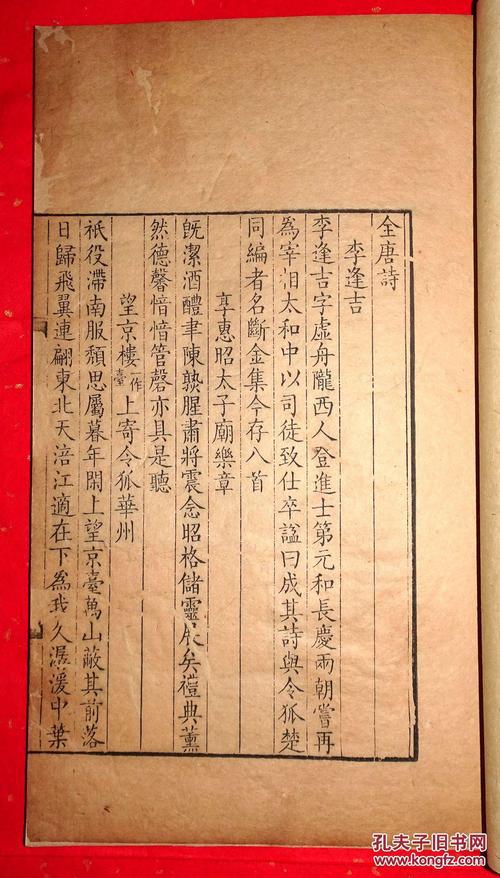 全唐詩
李逢吉
李逢吉字虛舟隴西人登進士第元和長慶兩朝嘗再
爲宰相太和中以司徒致仕卒諡曰成其詩與令狐楚
同編者名斷金集今存八首
享惠昭太子廟樂章
旣潔酒醴聿陳熟腥肅將震念昭格儲靈展矣禮典薰
然德馨愔愔管磬亦具是聽
望京樓一作臺上寄令狐華州
祇役滯南服頹思屬暮年閑上望京臺萬山蔽其前落
日歸飛翼連翩東北天涪江適在下爲我久潺湲中葉
孔夫子旧书网
www.kongfz.com